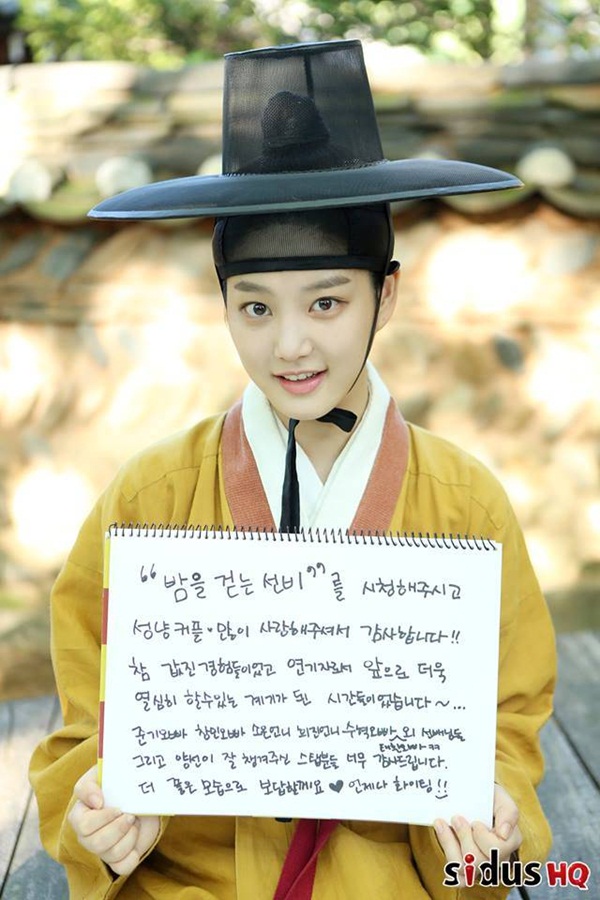 "밤을 걷는 선비"를 시청해주시고
성냥커플♥많이 사랑해주셔서 감사합니다!!
참 값진 경험들이었고 연기자로서 앞으로 더욱
열심히 할수있는 계기가 된 시간들이었습니다~...
준기오빠 창민오빠 소은언니 뇌진언니 수혁오빠 외 선배님들
태환오빠ㅋㅋ
그리고 양선이 잘 챙겨주신 스탭분들 너무 감사드립니다.
더 좋은 모습으로 보답할게요♥ 언제나 화이팅!!
sidus HQ